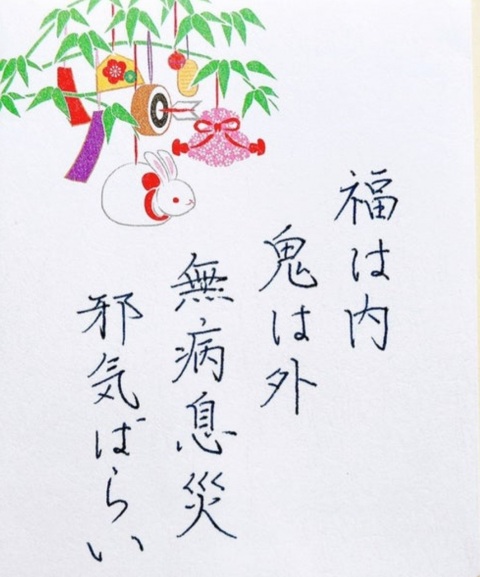 福は内
鬼は外
無病息災
邪気ばらい